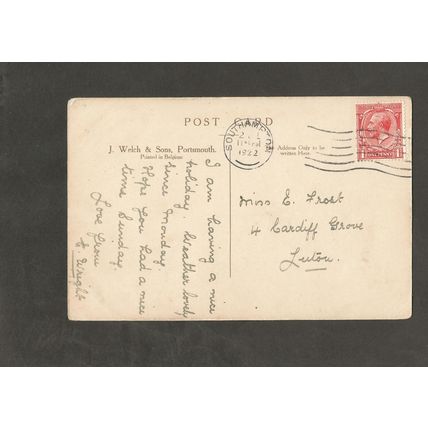 POST CARD
J. Welch & Sons, Portsmouth.
Printed in Belgium
Address Only to be
written Here.
SOUTHAMPTON
1922
ONE PENNY
I am having a nice
holiday, Weather lovely
since Monday.
Hope you had a nice
time Sunday.
Love from
A. Wright
Miss E. Frost
4 Cardiff Grove
Luton.